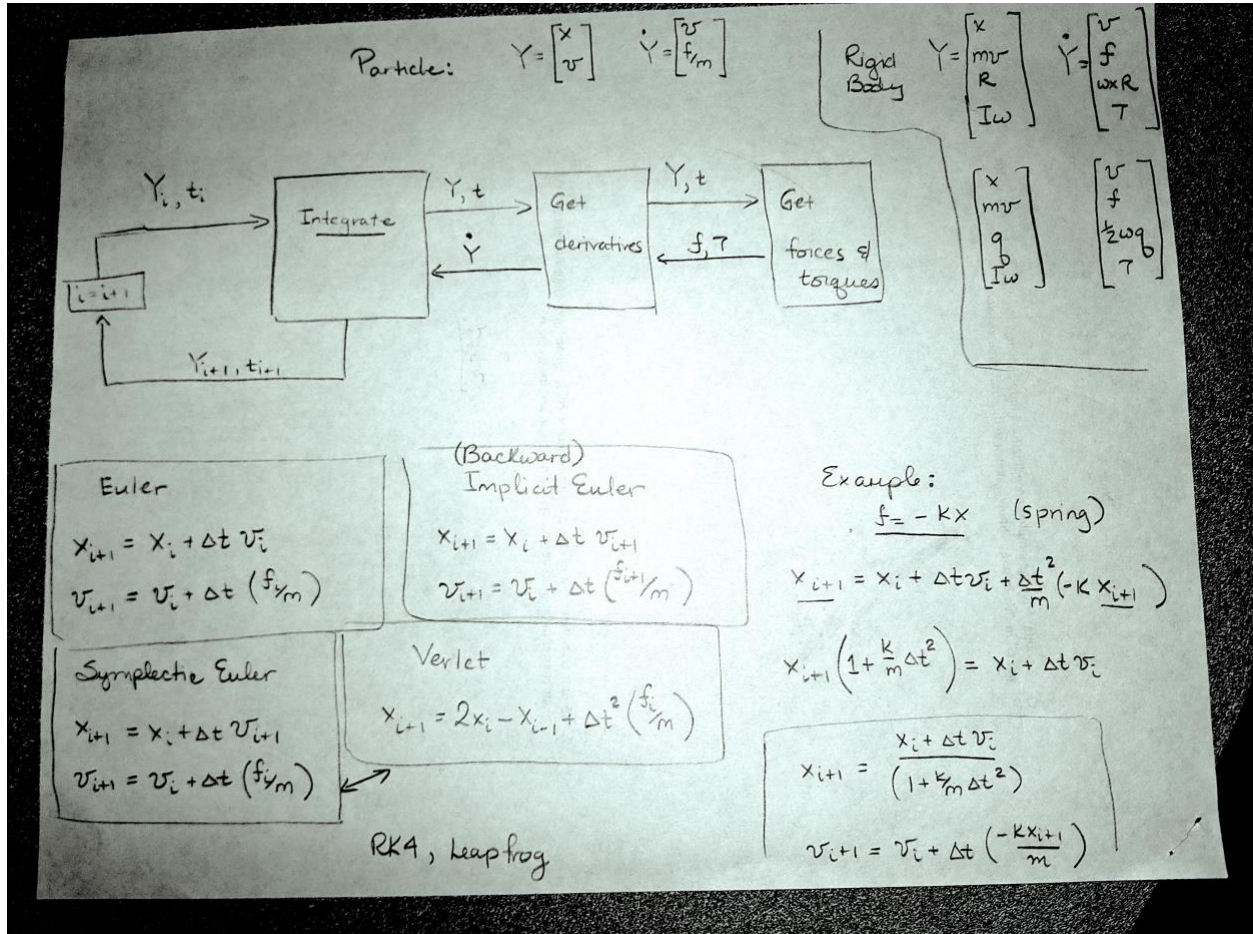 Particle: Y = [x v] Ẏ = [v f/m]
Rigid Body Y = [x mv R Iω] Ẏ = [v f ω×R τ]
[x mv q Iω] [v f ½ωq τ]
Y_i, t_i
Integrate
Y, t
Ẏ
Get
derivatives
Y, t
f, τ
Get
forces &
torques
i = i+1
Y_{i+1}, t_{i+1}
Euler
x_{i+1} = x_i + Δt v_i
v_{i+1} = v_i + Δt (f_i/m)
(Backward)
Implicit Euler
x_{i+1} = x_i + Δt v_{i+1}
v_{i+1} = v_i + Δt (f_{i+1}/m)
Symplectic Euler
x_{i+1} = x_i + Δt v_{i+1}
v_{i+1} = v_i + Δt (f_i/m)
Verlet
x_{i+1} = 2x_i - x_{i-1} + Δt² (f_i/m)
RK4, Leapfrog
Example:
f = -kx (spring)
x_{i+1} = x_i + Δt v_i + Δt²/m (-k x_{i+1})
x_{i+1} (1 + k/m Δt²) = x_i + Δt v_i
x_{i+1} = (x_i + Δt v_i) / (1 + k/m Δt²)
v_{i+1} = v_i + Δt (-kx_{i+1}/m)